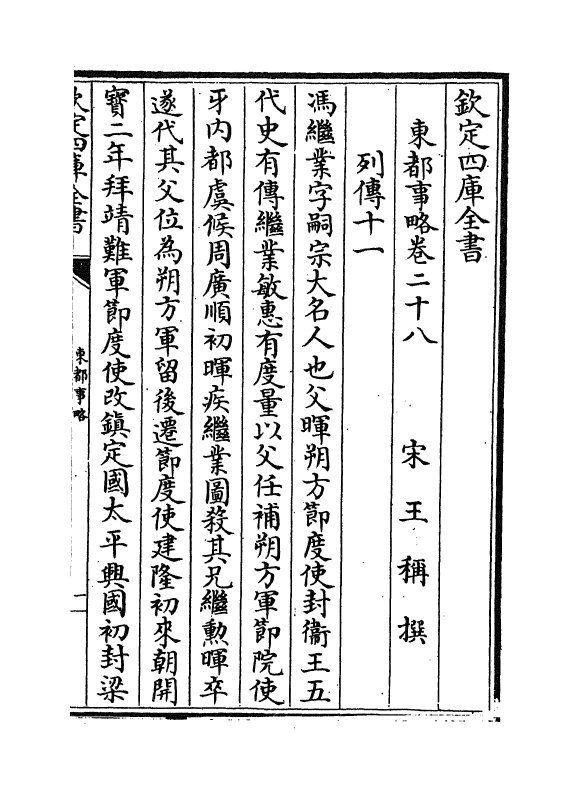 欽定四庫全書
東都事略卷二十八　宋王稱撰
列傳十一
馮繼業字嗣宗大名人也父暉朔方節度使封衞王五
代史有傳繼業敏惠有度量以父任補朔方軍節院使
牙内都虞候周廣順初暉疾繼業圖殺其兄繼勲暉卒
遂代其父位為朔方軍留後遷節度使建隆初來朝開
寳二年拜靖難軍節度使改鎮定國太平興國初封梁
欽定四庫全書
東都事略